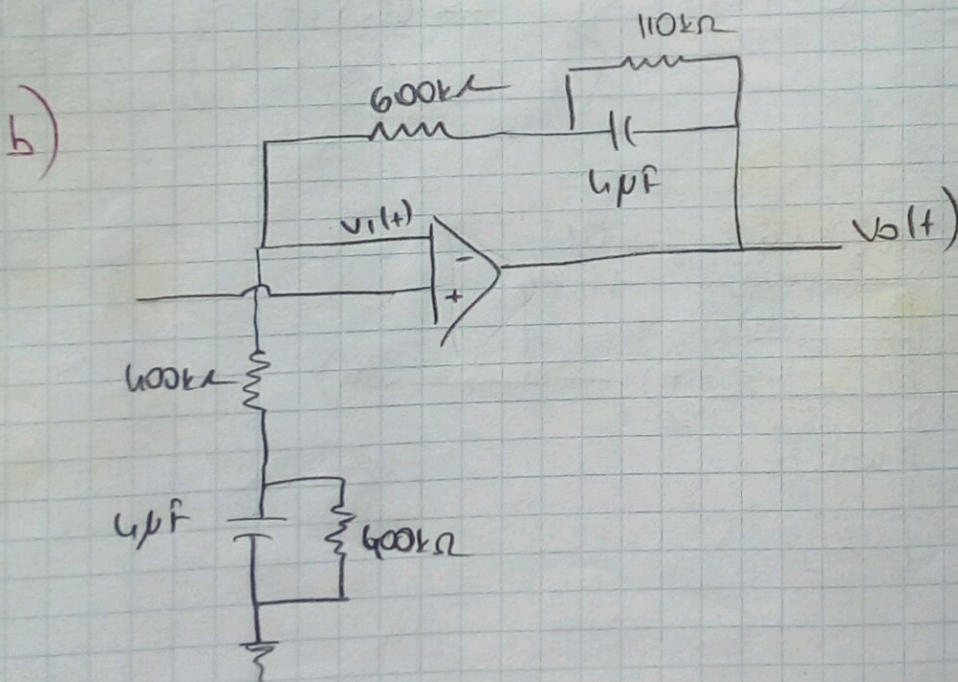 110kΩ
b)
600kΩ
4μF
v1(t)
vo(t)
-
+
400kΩ
4μF
400kΩ